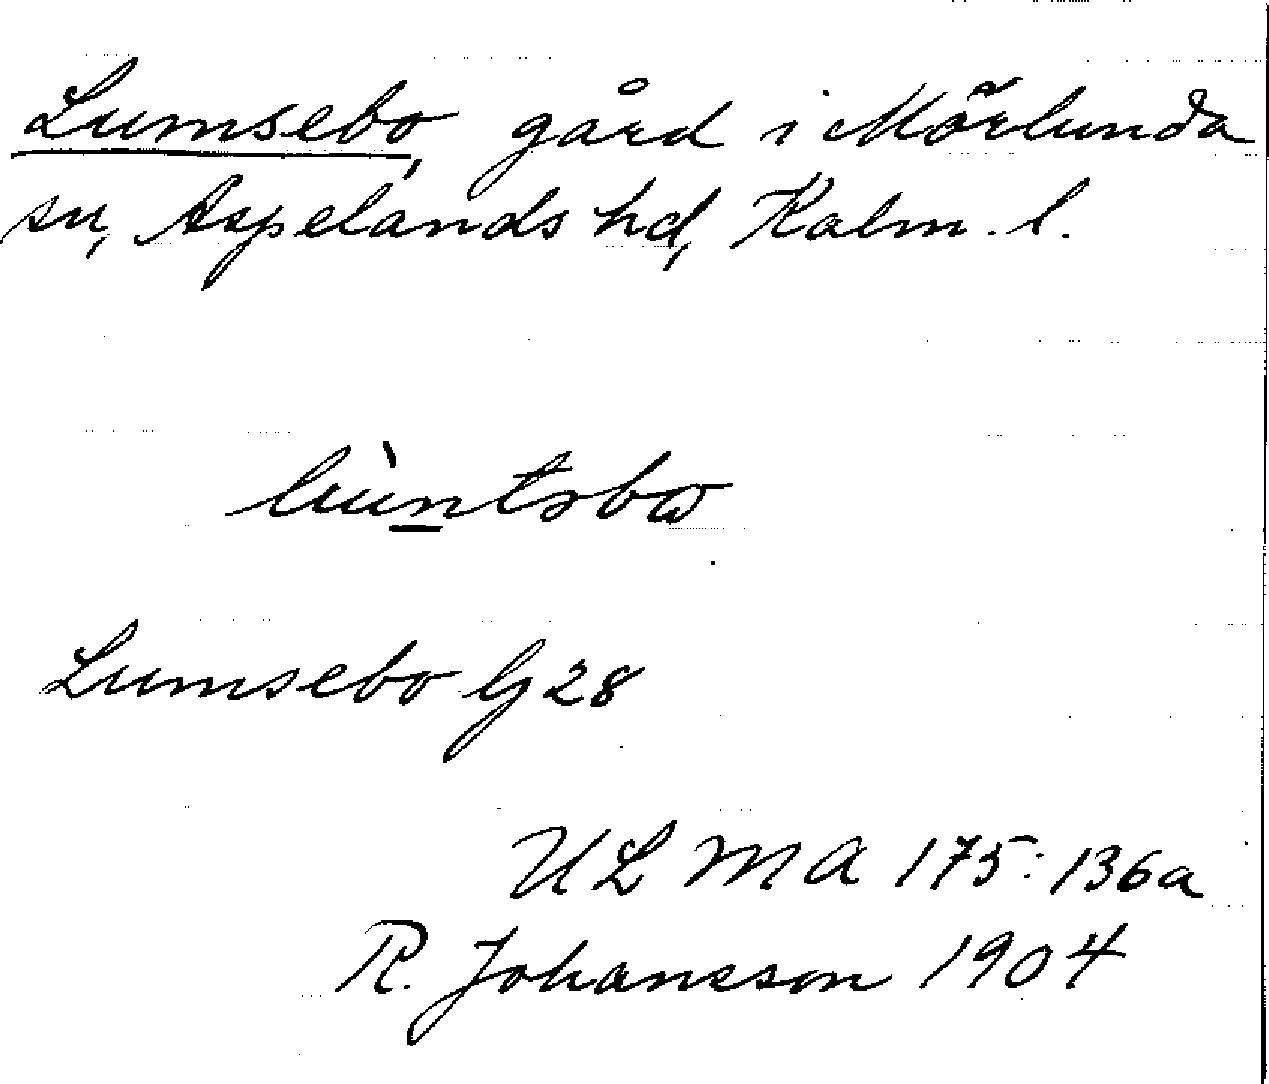 Lumsebo, gård i Mörlunda
sn, Aspelands hd, Kalm. l.
lùntsbω
Lumsebo G 28
ULMA 175:136a
R. Johansson 1904